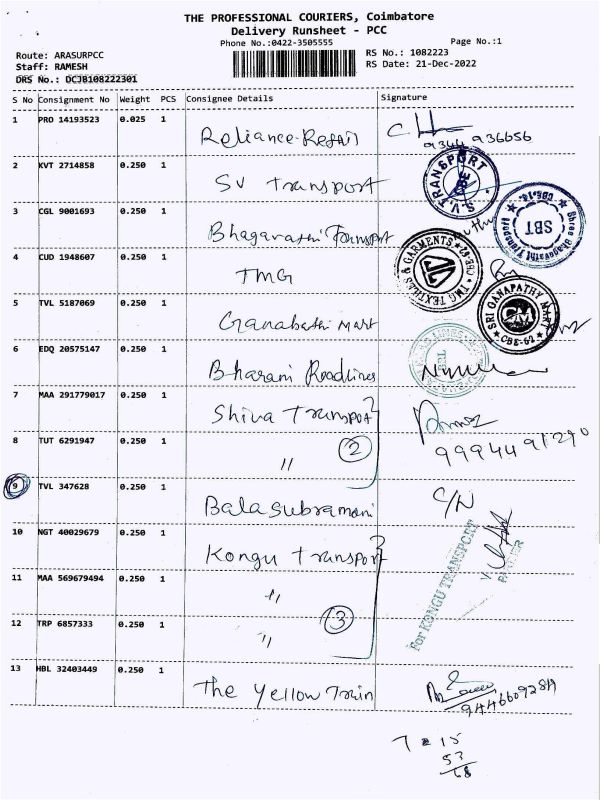 THE PROFESSIONAL COURIERS, Coimbatore
Delivery Runsheet - PCC
Phone No.:0422-3505555
Page No.:1
Route: ARASURPCC
Staff: RAMESH
DRS No.: DCJB108222301
RS No.: 1082223
RS Date: 21-Dec-2022
S No Consignment No Weight PCS Consignee Details Signature
1 PRO 14193523 0.025 1 Reliance Retail
9344 936656
2 KVT 2714858 0.250 1 SV Transport
S.V. TRANSPORT CBE
3 CGL 9001693 0.250 1 Bhagavathi Transport
SBT
4 CUD 1948607 0.250 1 TMG
TMG TEXTILES & GARMENTS CBE-62
5 TVL 5187069 0.250 1 Ganabathi Mart
SRI GANAPATHY MART CBE-62 GM
6 EDQ 20575147 0.250 1 Bharani Roadlines
7 MAA 291779017 0.250 1 Shiva Transport
8 TUT 6291947 0.250 1 " (2)
9994491290
9 TVL 347628 0.250 1 Balasubramani
C/N
10 NGT 40029679 0.250 1 Kongu Transport
For KONGU TRANSPORT
11 MAA 569679494 0.250 1 "
12 TRP 6857333 0.250 1 " (3)
13 HBL 32403449 0.250 1 The Yellow Train
7 = 15
53
68